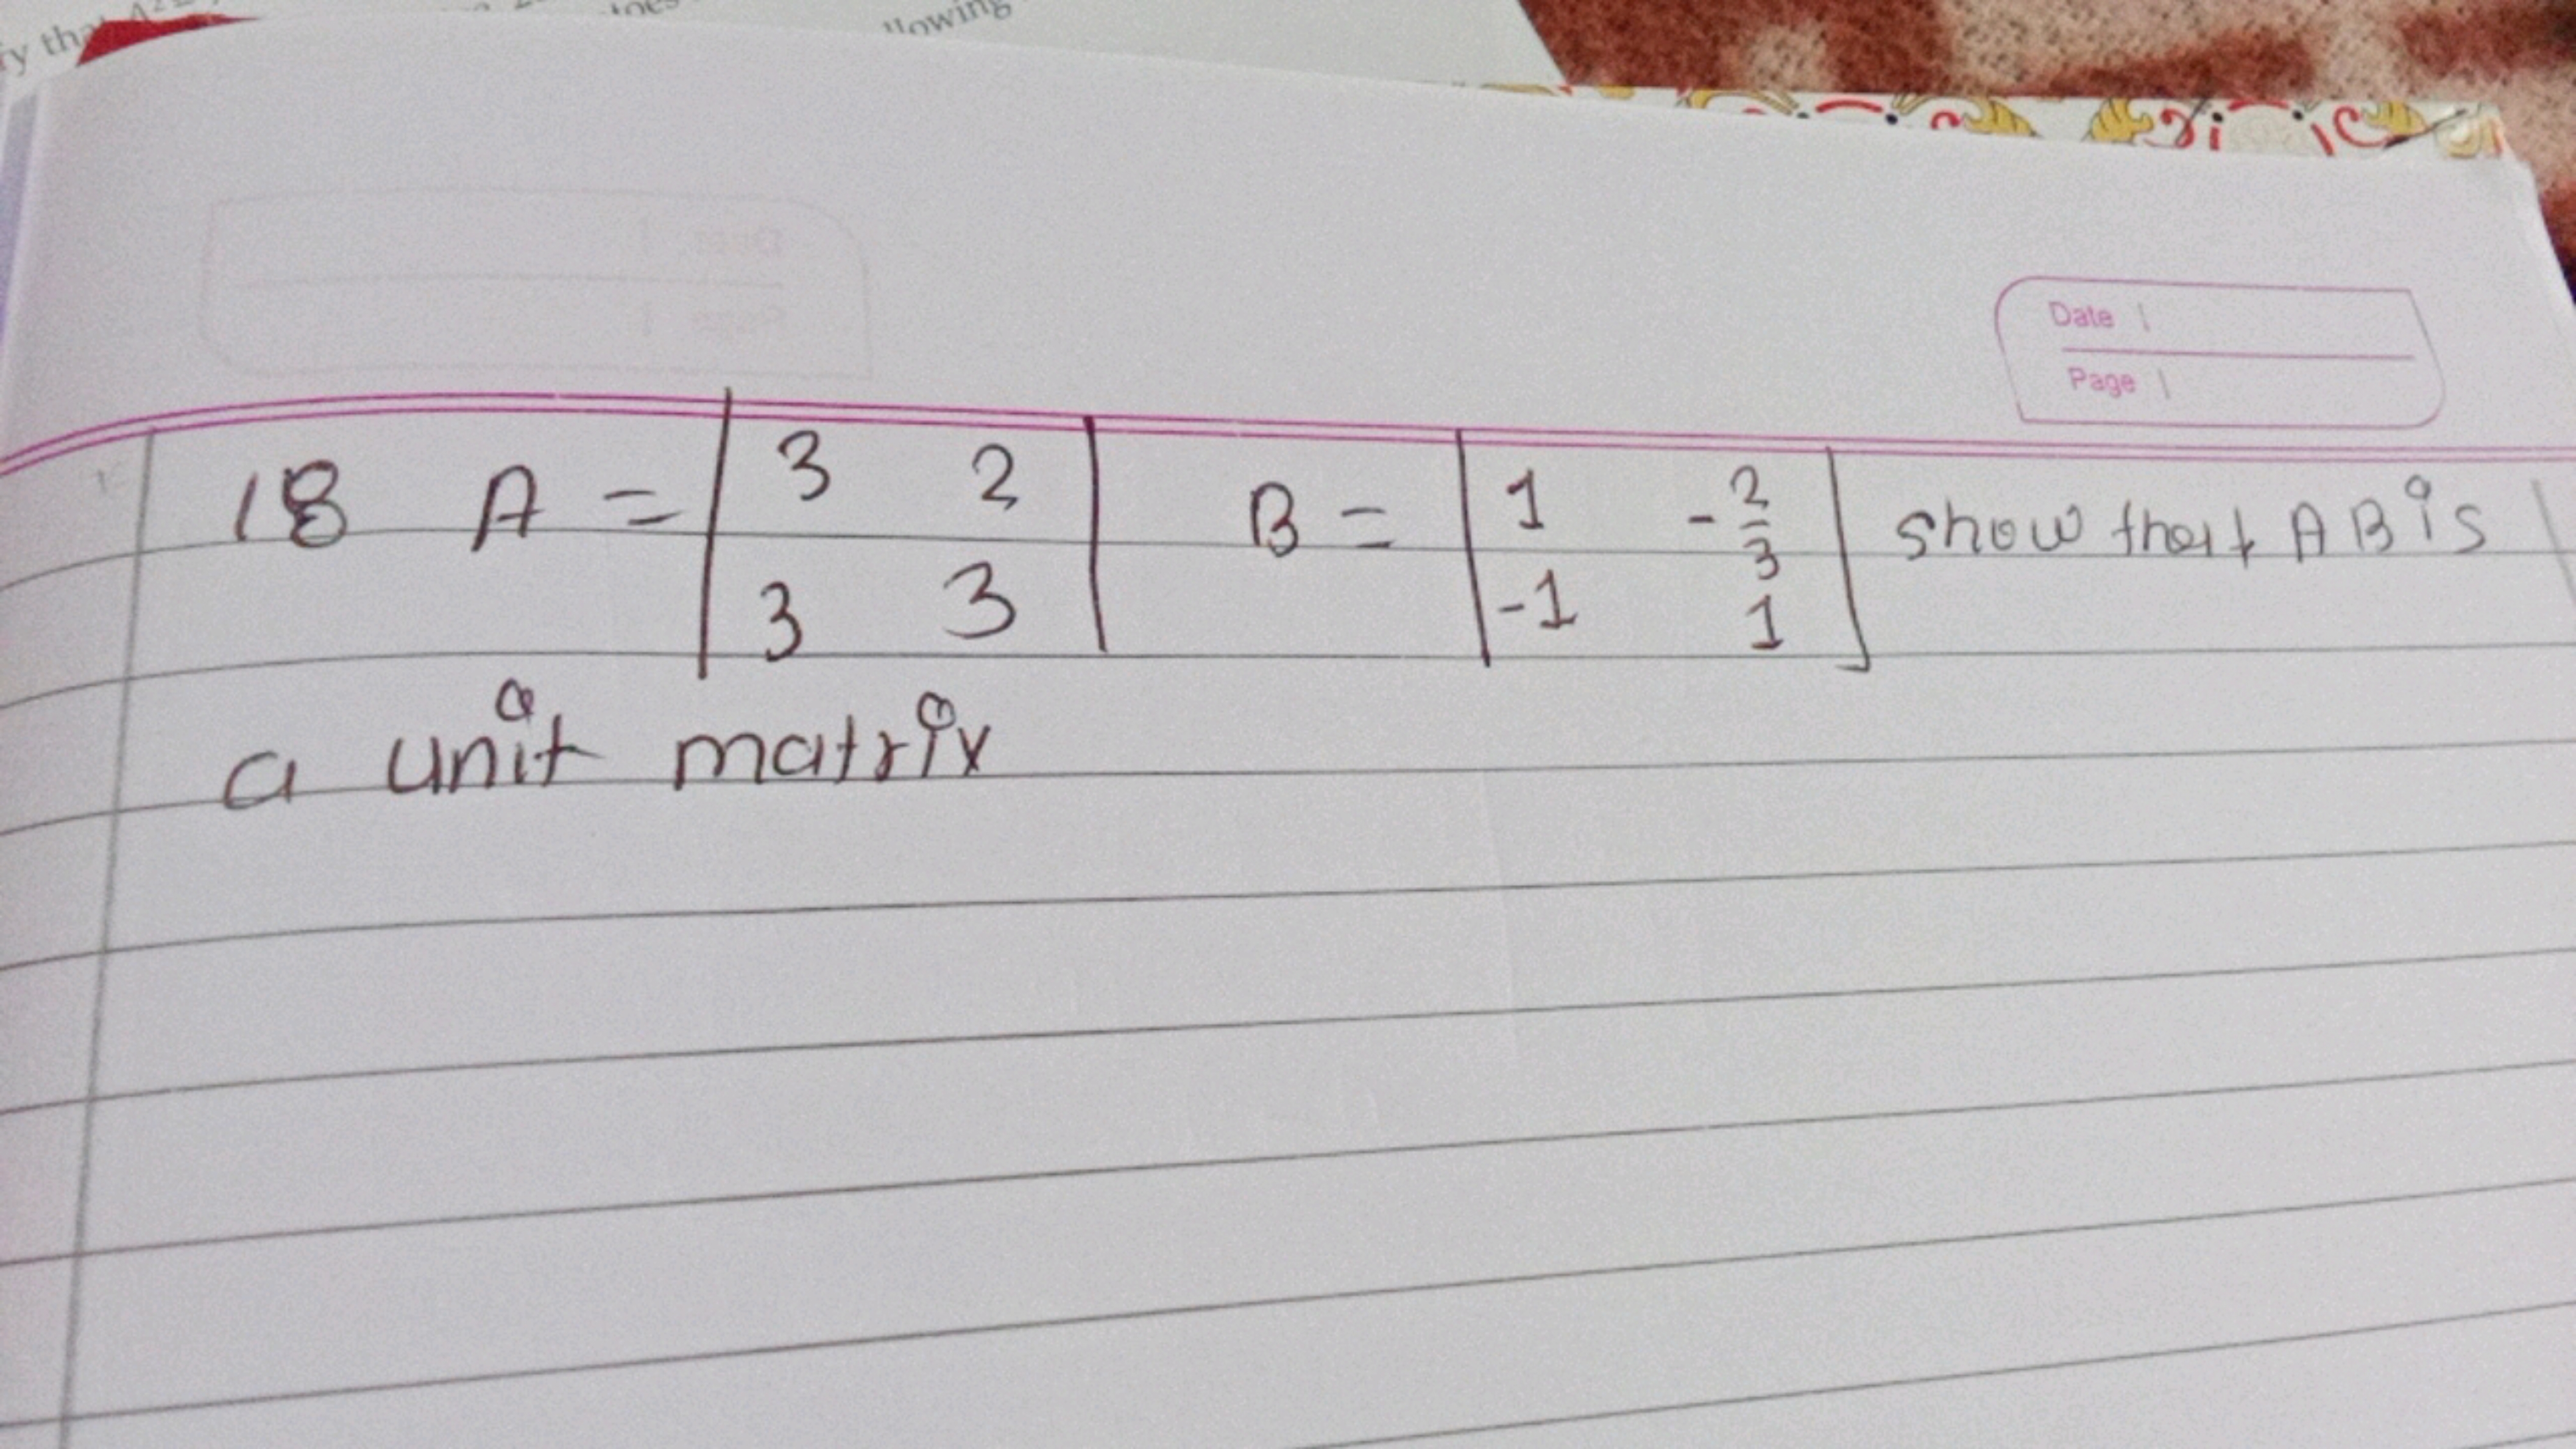 fy tha
llowing
Date
Page
18 A = | 3 2 | B = | 1 -2/3 ] show that AB is
3 3 -1 1
a unit matrix